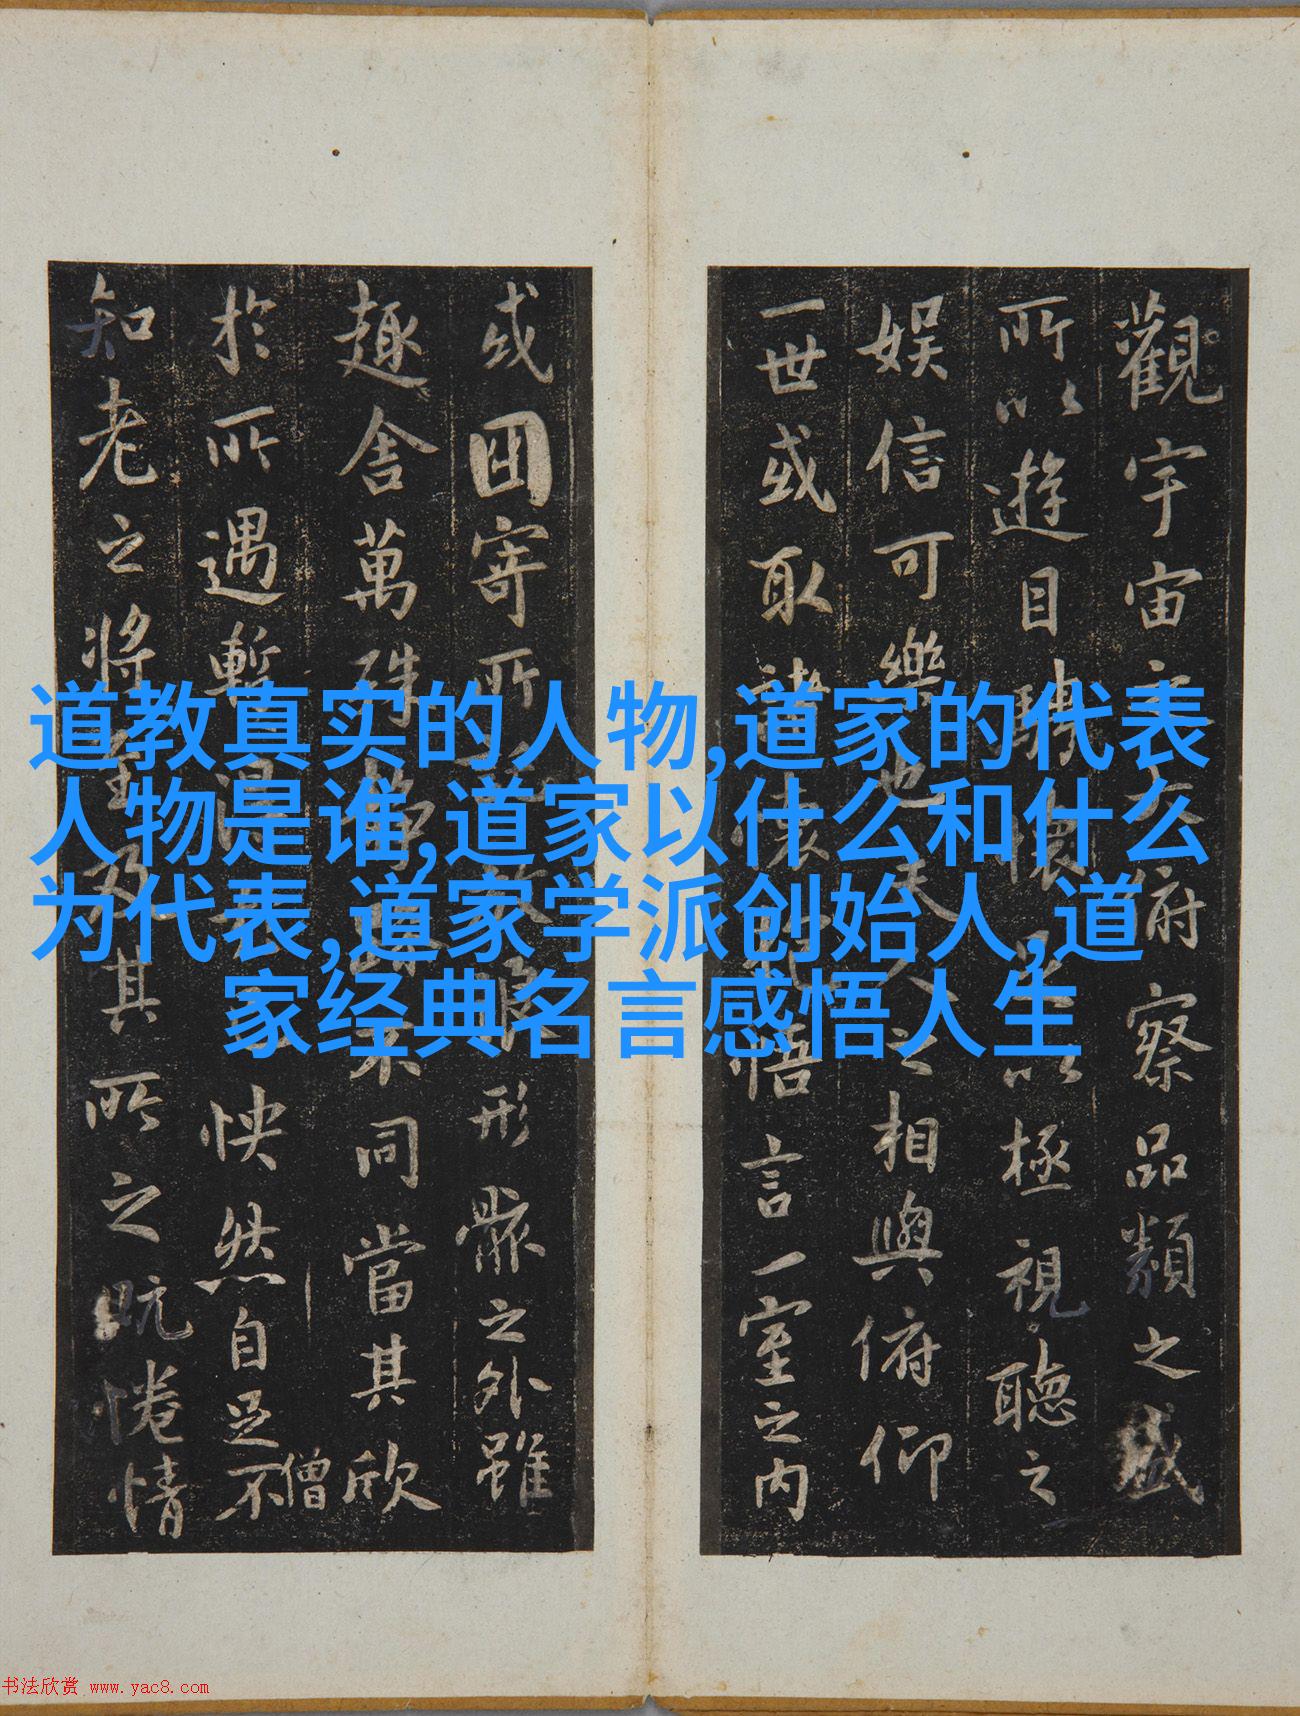 道教真实的人物,道家的代表
人物是谁,道家以什么和什么
为代表,道家学派创始人,道
家经典名言感悟人生
觀宇宙之大俯察品類之盛
所以遊目騁懷足以極視聽之
娱信可樂也夫人之相與俯仰
一世或取諸懷抱悟言一室之内
或因寄所託放浪形骸之外雖
趣舍萬殊靜躁不同當其欣
於所遇暫得於己怏然自足不
僧
知老之將至及其所之既惓情
书法欣赏 www.yac8.com